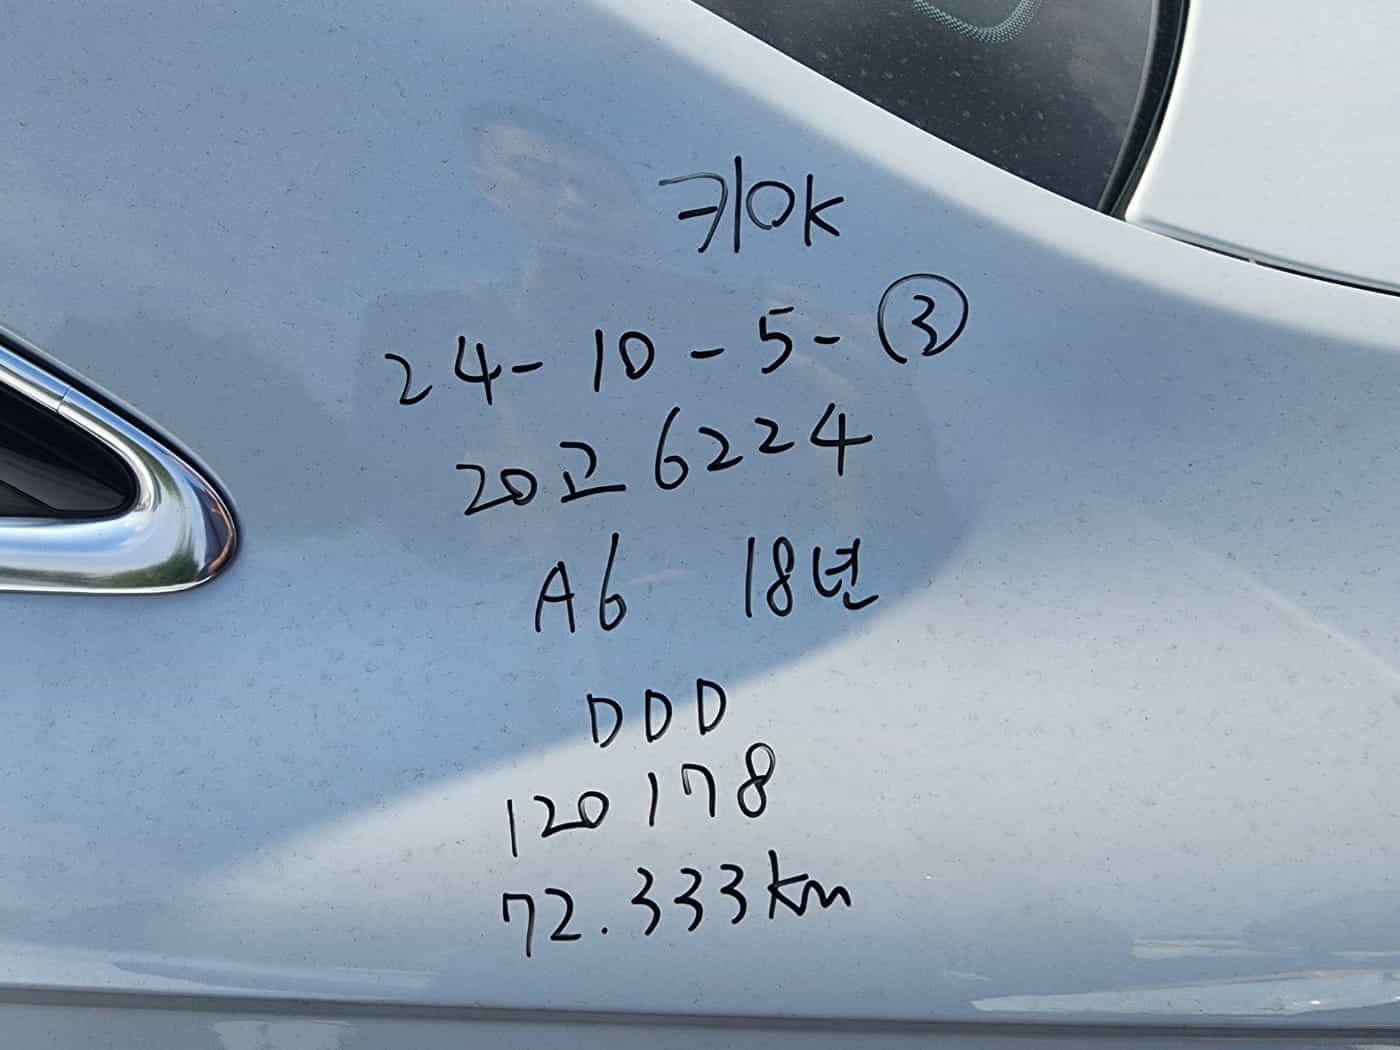 키OK
24-10-5-③
20고 6224
A6 18년
DDD
120178
72.333km